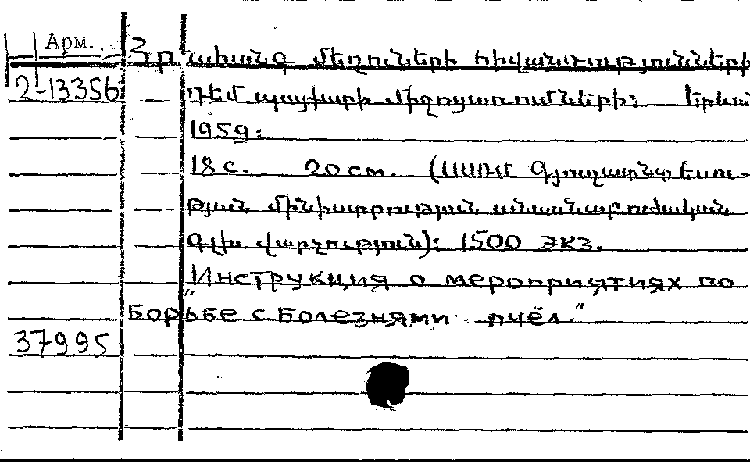 Арм.
Հրահանգ մեղուների հիվանդությունների
2-13356 դեմ պայքարի միջոցառումների: Երևան
1959:
18 с. 20 см. (ՍՍՌՄ Գյուղատնտեսու-
թյան մինիստրություն անասնաբուժական
գլխ վարչություն): 1500 экз.
"Инструкция о мероприятиях по
борьбе с болезнями пчёл."
37995